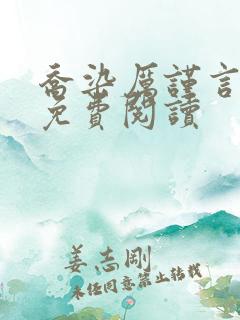 喬染厲謹言
免費閱讀
姜志剛
未经同意禁止转载